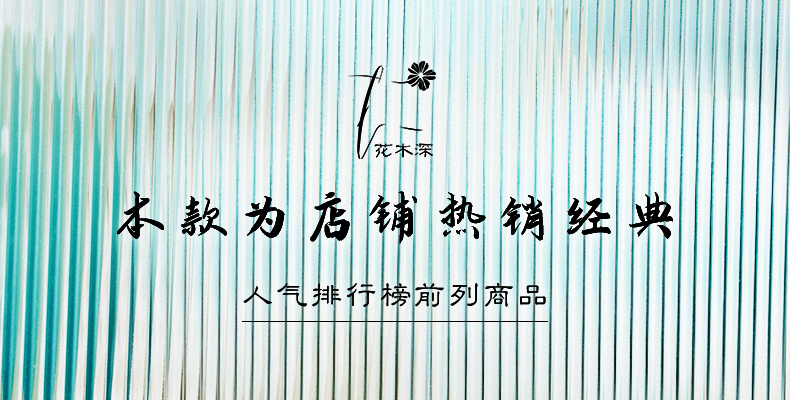 花木深
本款为店铺热销经典
人气排行榜前列商品